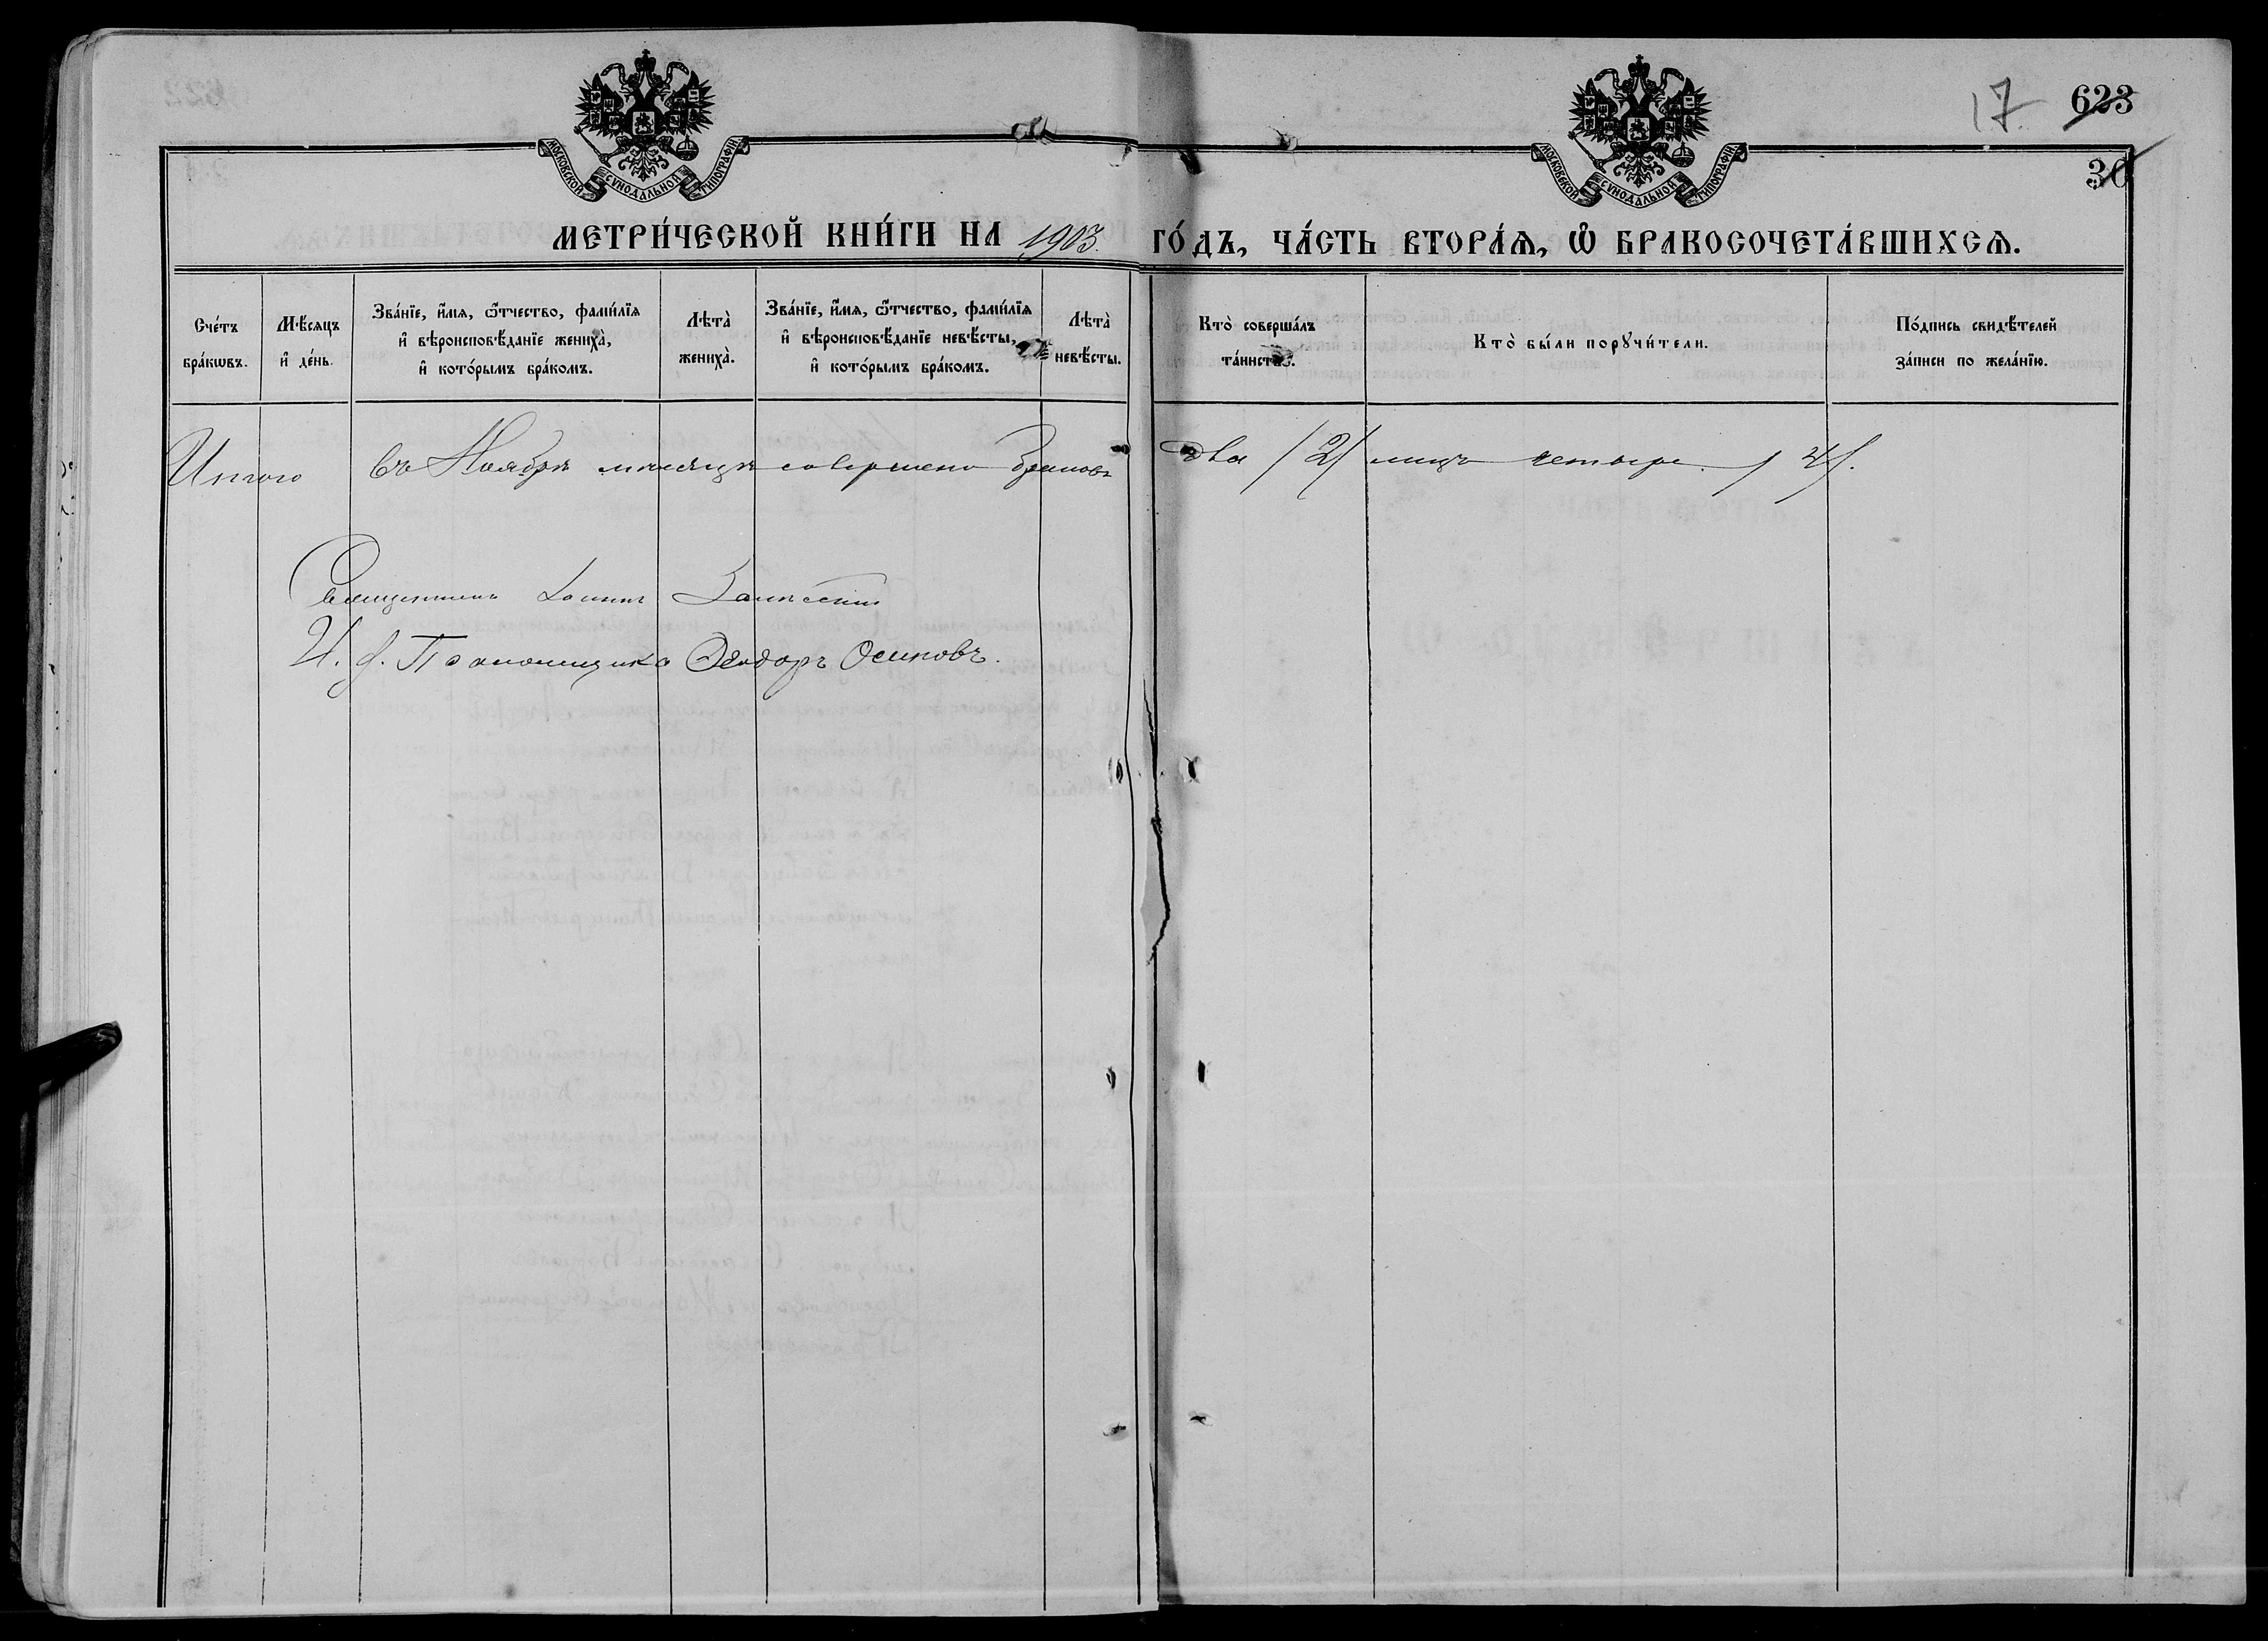 17 623
30
МОСКОВСКОЙ СѴНОДАЛЬНОЙ ТИПОГРАФІИ
МОСКОВСКОЙ СѴНОДАЛЬНОЙ ТИПОГРАФІИ
МЕТРИ́ЧЕСКОЙ КНИ́ГИ НА 1903. ГО́ДЪ, ЧА́СТЬ ВТОРА́Ѧ, Ѡ҆ БРАКОСОЧЕТА́ВШИХСѦ.
Сче́тъ бра́кѡвъ.
Мѣ́сѧцъ и҆ де́нь.
Зва́нїе, и҆́мѧ, ѻ҆́тчество, фами́лїѧ и҆ вѣроисповѣ́данїе жениха̀, и҆ кото́рымъ бра́комъ.
Лѣта̀ жениха̀.
Зва́нїе, и҆́мѧ, ѻ҆́тчество, фами́лїѧ и҆ вѣроисповѣ́данїе невѣ́сты, и҆ кото́рымъ бра́комъ.
Лѣта̀ невѣ́сты.
Кто̀ соверша́лъ та́инство.
Кто̀ бы́ли порꙋчи́тели.
По́дпись свидѣ́телей за́писи по жела́нїю.
Итого въ Ноябрѣ мѣсяцѣ совершено браковъ два /2/ лицъ четыре /4/.
Священникъ Іоаннъ
И. д. Псаломщика Ѳеодоръ Осиповъ.